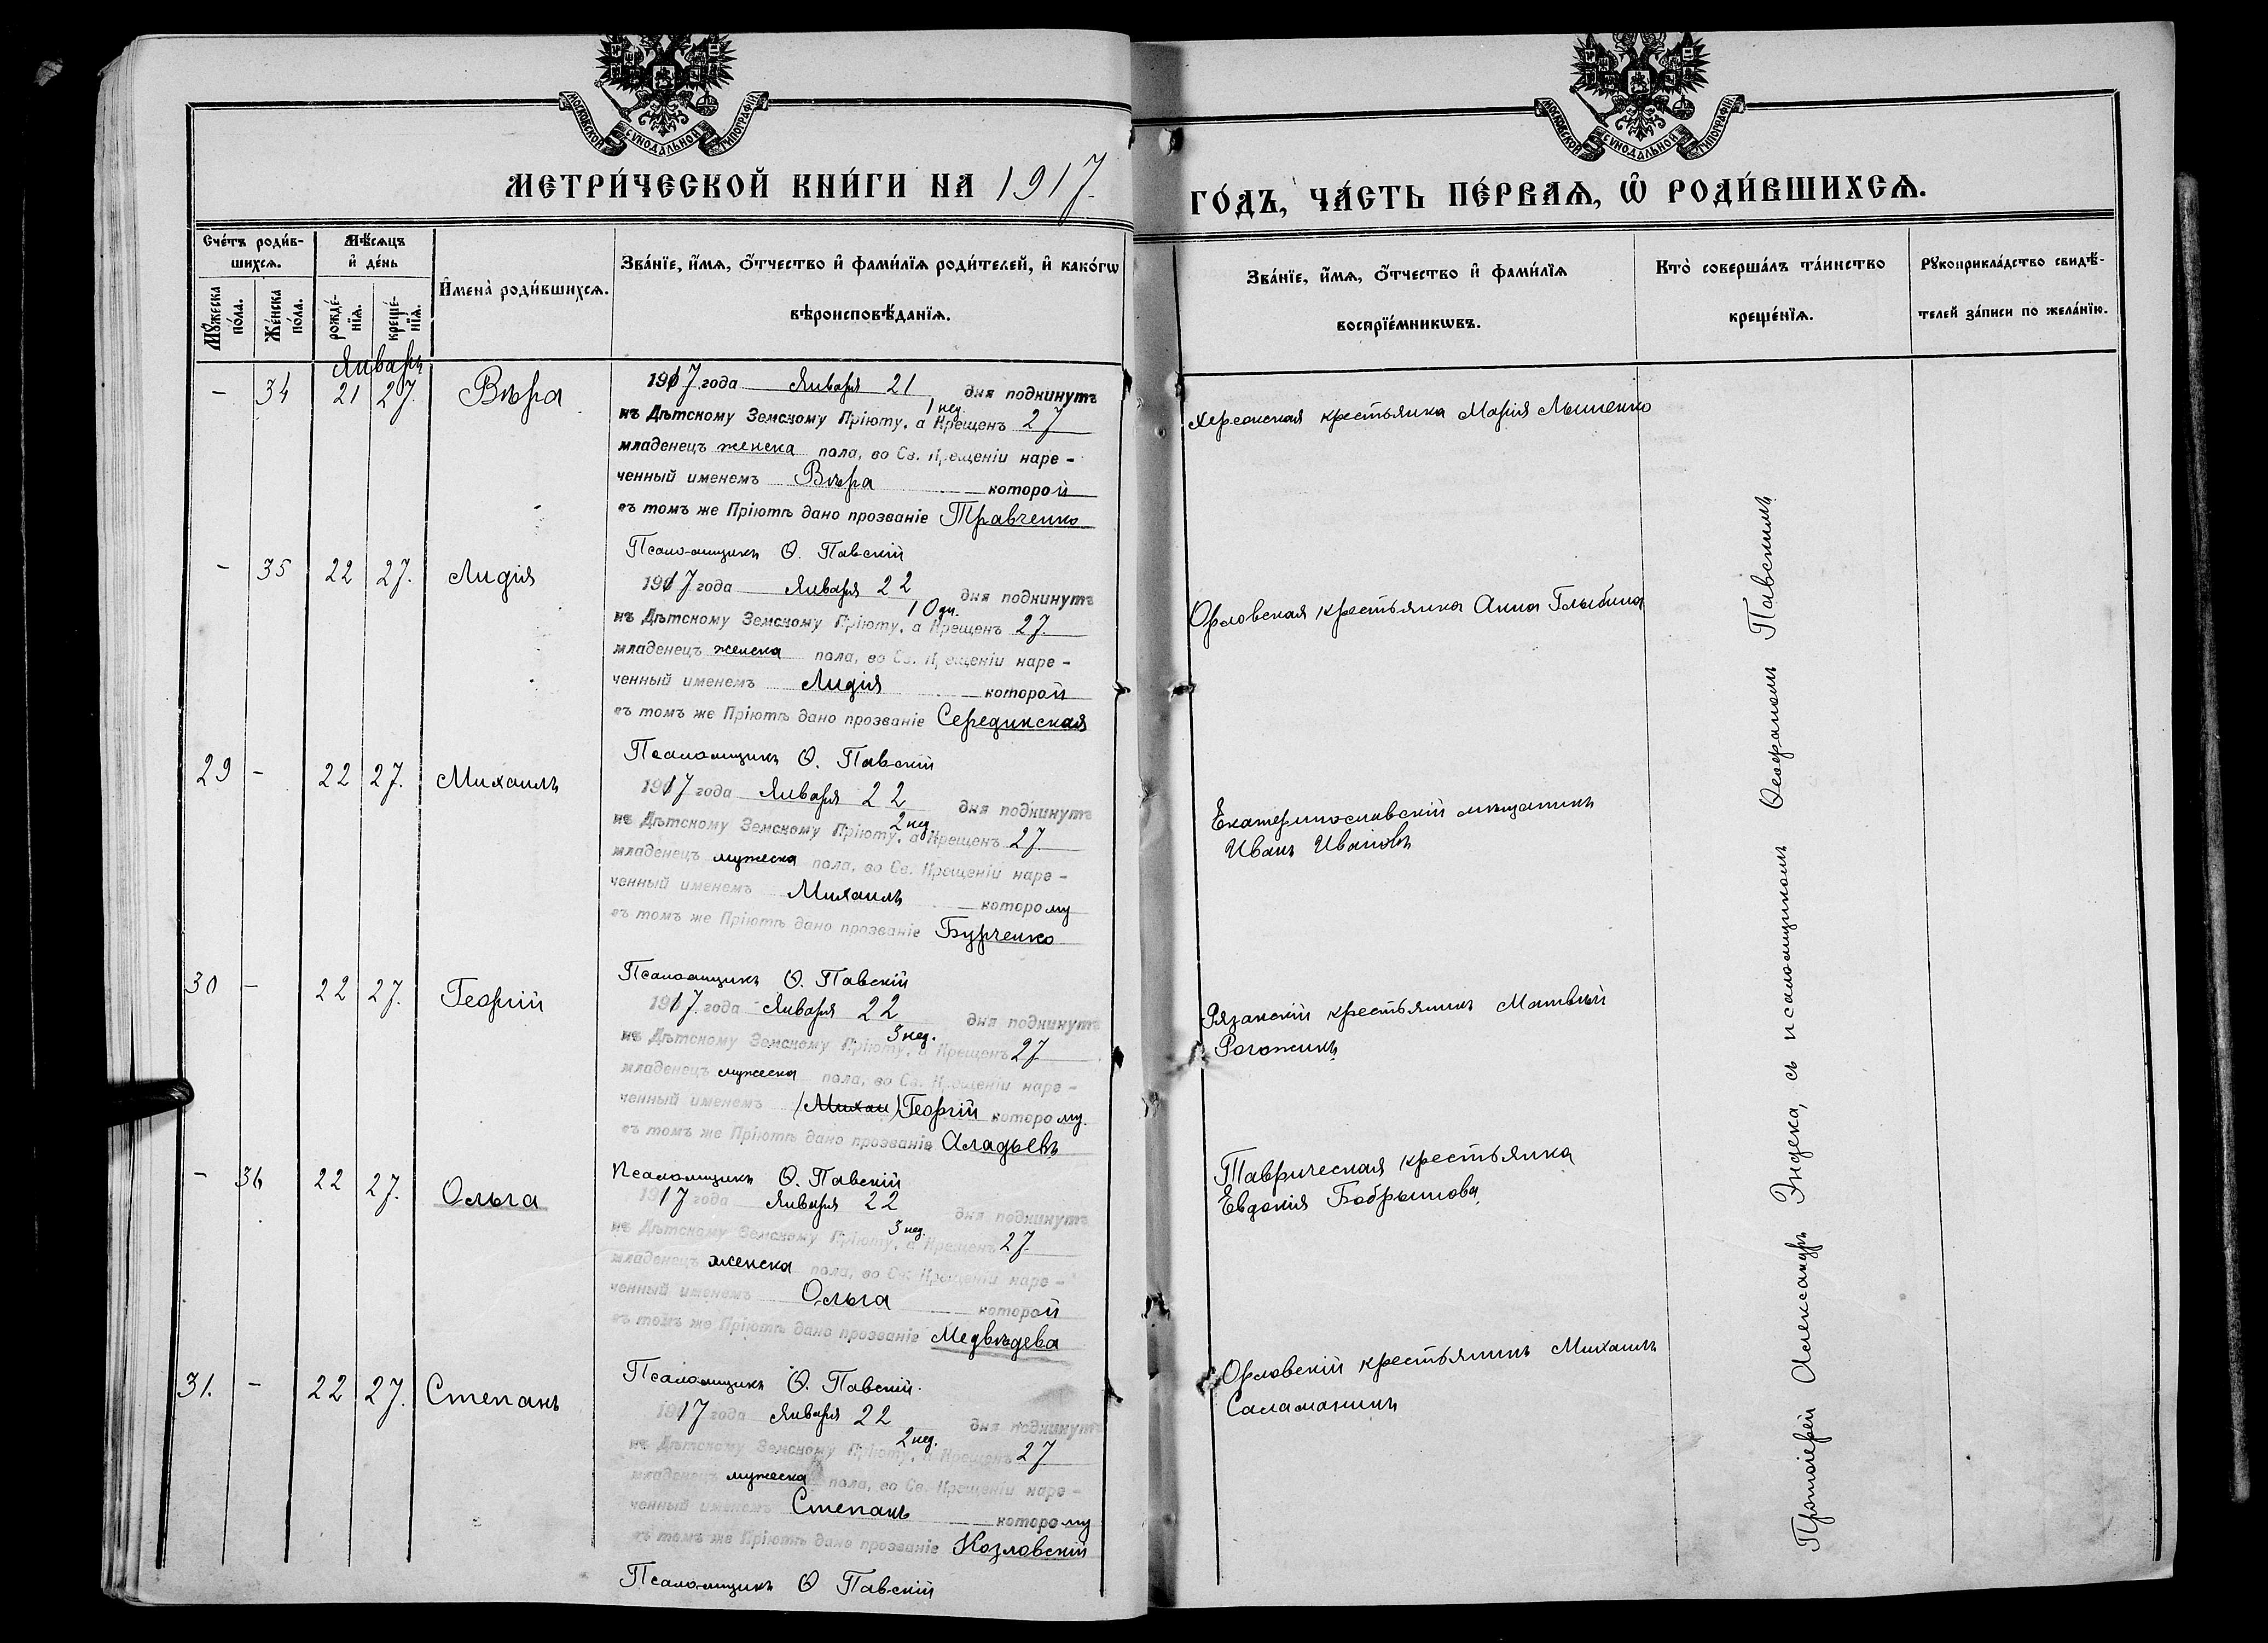 МОСКОВСКОЙ СѴНОДАЛЬНОЙ ТИПОГРАФІИ
МОСКОВСКОЙ СѴНОДАЛЬНОЙ ТИПОГРАФІИ
МЕТРИ́ЧЕСКОЙ КНИ́ГИ НА 1917.
ГО́ДЪ, ЧА́СТЬ ПЕ́РВАѦ, Ѡ҆ РОДИ́ВШИХСѦ.
Сче́тъ роди́в-
шихсѧ.
Мꙋ́жеска
по́ла.
Же́нска
по́ла.
Мѣ́сѧцъ
и҆ де́нь
рожде́-
нїѧ.
креще́-
нїѧ.
И҆мена̀ роди́вшихсѧ.
Зва́нїе, и҆́мѧ, ѻ҆́тчество и҆ фами́лїѧ роди́телей, и҆ како́гѡ
вѣроисповѣ́данїѧ.
Зва́нїе, и҆́мѧ, ѻ҆́тчество и҆ фами́лїѧ
воспрїе́мникѡвъ.
Кто̀ соверша́лъ та́инство
креще́нїѧ.
Рꙋкоприкла́дство свидѣ́-
телей за́писи по жела́нїю.
Январь
- 34 21 27. Вѣра
1917 года Января 21 дня подкинутъ
1 нед.
къ Дѣтскому Земскому Пріюту, а Крещенъ 27
младенецъ женска пола, во Св. Крещеніи наре-
ченный именемъ Вѣра которой
въ томъ же Пріютѣ дано прозваніе Травченко
Псаломщикъ Ѳ. Павскій
Херсонская крестьянка Марія Мышенко
- 35 22 27. Лидія
1917 года Января 22 дня подкинутъ
10 дн.
къ Дѣтскому Земскому Пріюту, а Крещенъ 27.
младенецъ женска пола, во Св. Крещеніи наре-
ченный именемъ Лидія которой
въ томъ же Пріютѣ дано прозваніе Серединская
Псаломщикъ Ѳ. Павскій
Орловская крестьянка Анна Глыбина
29 - 22 27. Михаилъ
1917 года Января 22 дня подкинутъ
2 нед
къ Дѣтскому Земскому Пріюту, а Крещенъ 27.
младенецъ мужеска пола, во Св. Крещеніи наре-
ченный именемъ Михаилъ которому
въ томъ же Пріютѣ дано прозваніе Бурченко
Псаломщикъ Ѳ. Павскій
Екатеринославскій мѣщанинъ
Иванъ Ивановъ
30 - 22 27. Георгій
1917. года Января 22 дня подкинутъ
3 нед.
къ Дѣтскому Земскому Пріюту, а Крещенъ 27
младенецъ мужеска пола, во Св. Крещеніи наре-
ченный именемъ (Михаи) Георгій которому.
въ томъ же Пріютѣ дано прозваніе Аладьевъ
Псаломщикъ Ѳ. Павскій
Рязанскій крестьянинъ Матвѣй
Рогожинъ
- 36 22 27. Ольга
1917 года Января 22 дня подкинутъ
3 нед.
къ Дѣтскому Земскому Пріюту, а Крещенъ 27.
младенецъ женска пола, во Св. Крещеніи наре-
ченный именемъ Ольга которой
въ томъ же Пріютѣ дано прозваніе Медвѣдева
Псаломщикъ Ѳ. Павскій.
Таврическая крестьянка
Евдокія Бобрышова
31. - 22 27. Степанъ
1917 года Января 22 дня подкинутъ
2 нед.
къ Дѣтскому Земскому Пріюту, а Крещенъ 27
младенецъ мужеска пола, во Св. Крещеніи наре-
ченный именемъ Степанъ которому
въ томъ же Пріютѣ дано прозваніе Козловскій
Псаломщикъ Ѳ Павскій
Орловскій крестьянинъ Михаилъ
Саламакинъ
Протоіерей Александръ Эндека, съ псаломщикомъ Ѳеофаномъ Павскимъ